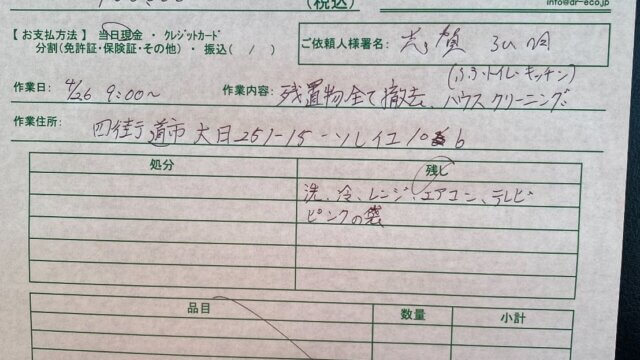 (税込)
info@dr-eco.jp
【お支払方法】 当日現金・クレジットカード
分割(免許証・保険証・その他)・振込( / )
ご依頼人様署名:
(ふろ・トイレ・キッチン)
作業日: 4/26 9:00〜 作業内容: 残置物全て撤去、ハウスクリーニング
作業住所: 四街道市大日251-15
処分 残し
洗、冷、レンジ、エアコン、テレビ
ピンクの袋
品目 数量 小計